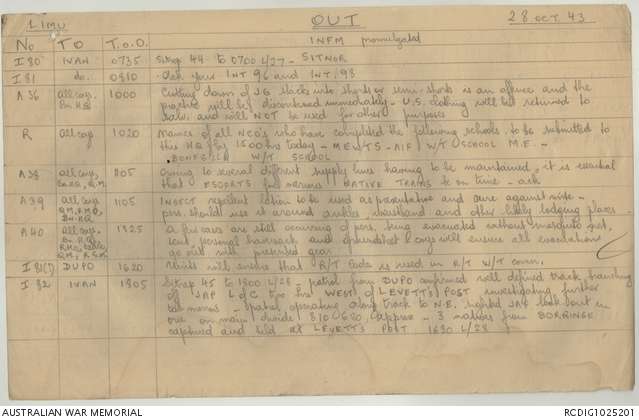 LIMU OUT 28 OCT 43
No TO T.o.O. INFM promulgated
I 80 IVAN 0735 Sitrep 44 to 0700 L/27 - SITNOR
I 81 do. 0810 Ack your INT 96 and INT/98
A 36 All coys, 1000 Cutting down of JG slacks into shorts or semi-shorts is an offence and the
Bn H.Q. practice will be discontinued immediately - U.S. clothing will be returned to
salv. and will NOT be used for other purposes
R All coys 1020 Names of all NCO's who have completed the following schools to be submitted to
this HQ by 1500 hrs today - MEWTS - AIF W/T SCHOOL M.E. -
W/T SCHOOL
A 38 All coys, 1105 Owing to several different supply lines having to be maintained, it is essential
Q.M. that ESCORTS for various NATIVE TRAINS be on time - ack
A 39 All coys, 1105 Insect repellent lotion to be used as preventative and cure against mite -
Q.M., R.M.O. pers. should use it around ankles, waistband and other likely lodging places.
Bn H.Q.
A 40 All coys, 1325 A few cases are still occurring of pers. being evacuated without mosquito net,
Bn H.Q. personal haversack and groundsheet. Coys will ensure all evacuations
go out with prescribed gear.
I 81(1) DUPO 1620 Units will ensure that R/T Code is used in R/T W/T convs.
I 82 IVAN 1805 Sitrep 45 to 1800 L/28 - patrol from DUPO confirmed well defined track branching
off JAP L of C WEST of LEVETT'S POST investigating further
tomorrow - patrol operating along track to N.E. sighted JAP look out in
tree on main divide 810680 approx - 3 natives from BORRINGE
captured and held at LEVETT'S POST 1630 L/28
AUSTRALIAN WAR MEMORIAL RCDIG1025201